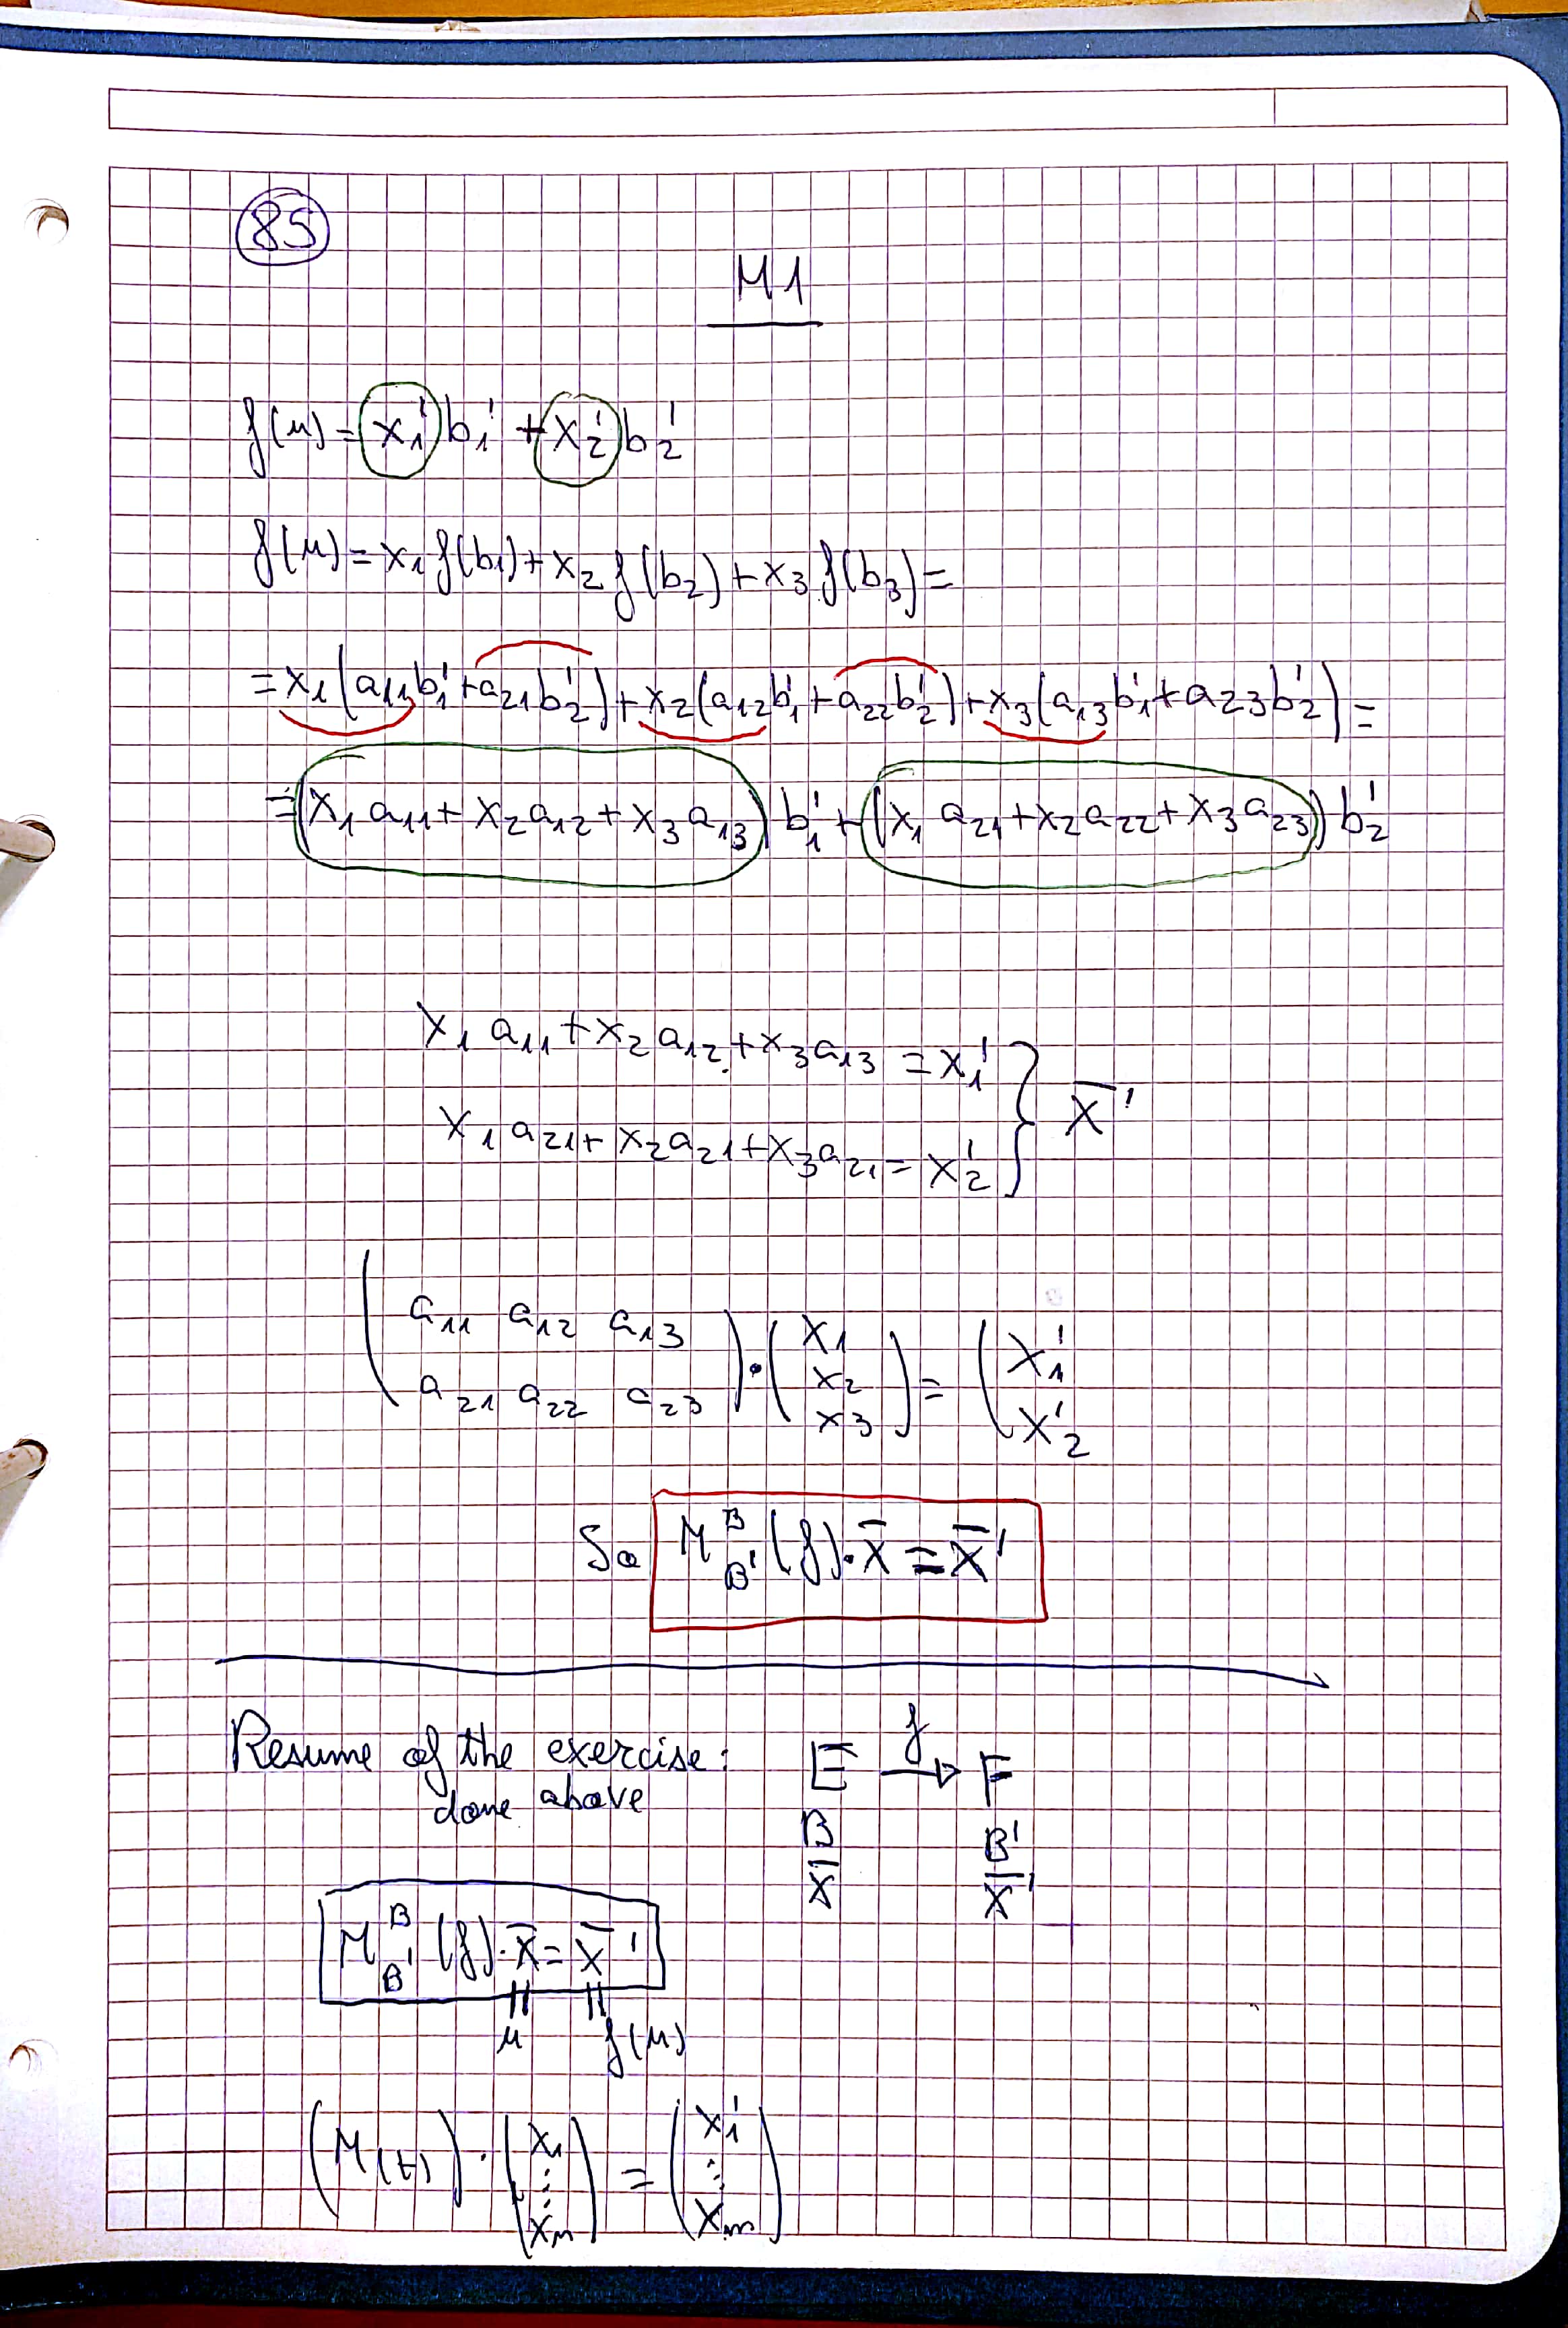 85
M1
f(u) = x₁' b₁' + x₂' b₂'
f(u) = x₁ f(b₁) + x₂ f(b₂) + x₃ f(b₃) =
= x₁ (a₁₁b₁' + a₂₁b₂') + x₂ (a₁₂b₁' + a₂₂b₂') + x₃ (a₁₃b₁' + a₂₃b₂') =
= (x₁ a₁₁ + x₂ a₁₂ + x₃ a₁₃) b₁' + (x₁ a₂₁ + x₂ a₂₂ + x₃ a₂₃) b₂'
x₁ a₁₁ + x₂ a₁₂ + x₃ a₁₃ = x₁' } X̄'
x₁ a₂₁ + x₂ a₂₁ + x₃ a₂₁ = x₂'
( a₁₁ a₁₂ a₁₃
a₂₁ a₂₂ a₂₃ ) · ( x₁
x₂
x₃ ) = ( x₁'
x₂'
So M^B_B' (f) · X̄ = X̄'
Resume of the exercise: E →f F
done above
B B'
X̄ X̄'
M^B_B' (f) · X̄ = X̄'
|| ||
u f(u)
(M(f)) · ( x₁ ⋮ xₙ ) = ( x₁' ⋮ xₘ )